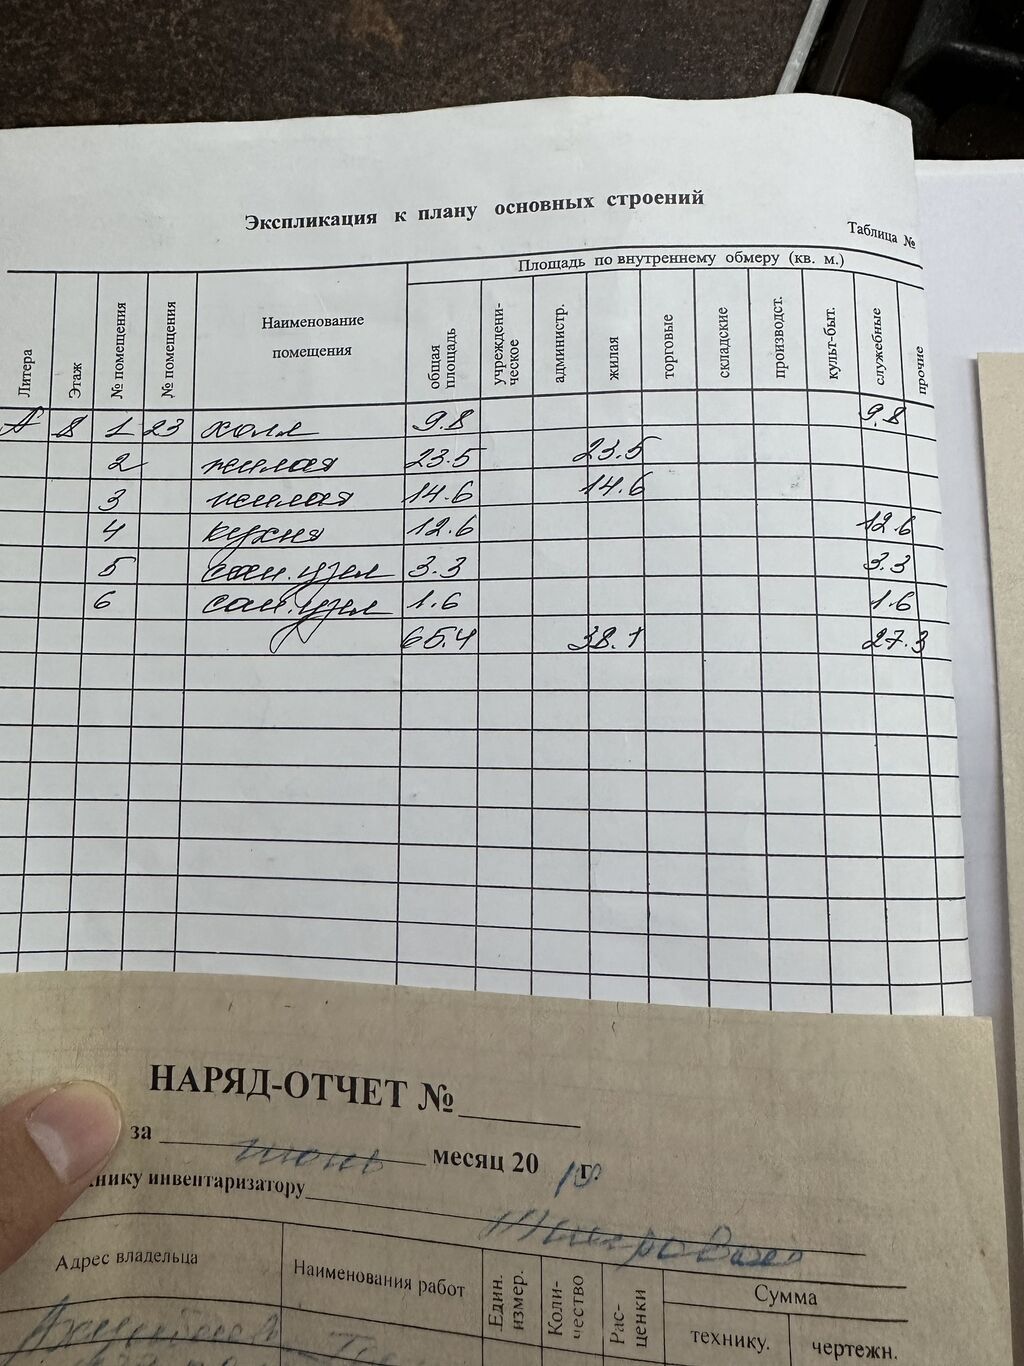 Экспликация к плану основных строений
Таблица №
Площадь по внутреннему обмеру (кв. м.)
Литера Этаж № помещения № помещения Наименование помещения общая площадь учреждени-ческое администр. жилая торговые складские производст. культ-быт. служебные прочие
А 8 1 23 холл 9.8 9.8
2 жилая 23.5 23.5
3 жилая 14.6 14.6
4 кухня 12.6 12.6
5 сан.узел 3.3 3.3
6 сан.узел 1.6 1.6
65.4 38.1 27.3
НАРЯД-ОТЧЕТ №
за июнь месяц 20 г.
нику инвентаризатору
Адрес владельца Наименования работ Един. измер. Коли-чество Рас-ценки Сумма
технику. чертежн.